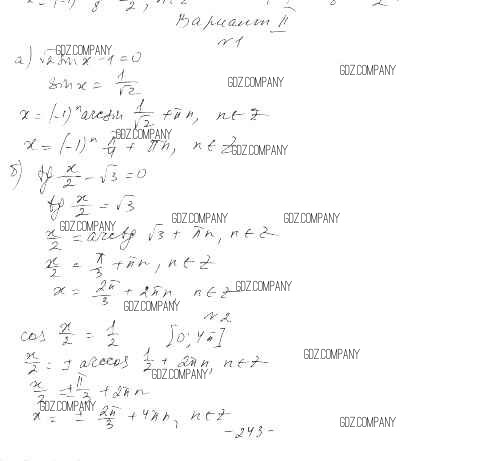 Вариант II
№1
а) √2 sin x - 1 = 0
sin x = 1/√2
x = (-1)ⁿ arcsin 1/√2 + πn, n ∈ Z
x = (-1)ⁿ π/4 + πn, n ∈ Z
б) tg x/2 - √3 = 0
tg x/2 = √3
x/2 = arctg √3 + πn, n ∈ Z
x/2 = π/3 + πn, n ∈ Z
x = 2π/3 + 2πn, n ∈ Z
№2
cos x/2 = 1/2 [0; 4π]
x/2 = ± arccos 1/2 + 2πn, n ∈ Z
x/2 = ± π/3 + 2πn
x = ± 2π/3 + 4πn, n ∈ Z
-243-
GDZ.COMPANY
GDZ.COMPANY
GDZ.COMPANY
GDZ.COMPANY
GDZ.COMPANY
GDZ.COMPANY
GDZ.COMPANY
GDZ.COMPANY
GDZ.COMPANY
GDZ.COMPANY
GDZ.COMPANY
GDZ.COMPANY
GDZ.COMPANY
GDZ.COMPANY